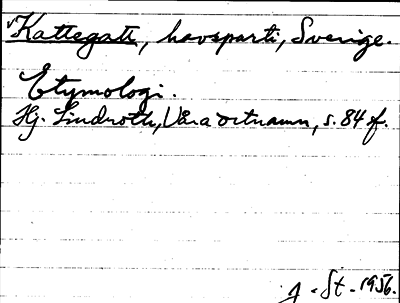 Kattegatt, havsparti, Sverige.
Etymologi.
Hj. Lindroth, Våra ortnamn, s. 84 f.
J. St. 1956.